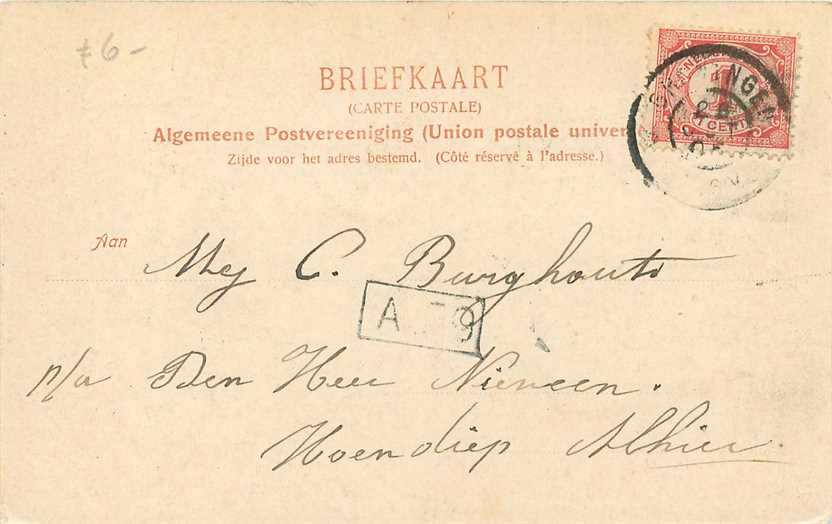 £6-
BRIEFKAART
(CARTE POSTALE)
Algemeene Postvereeniging (Union postale univer
Zijde voor het adres bestemd. (Côté réservé à l'adresse.)
Aan
Mej C. Burghouts
A 9
p/a Den Heer Nieveen.
Hoendiep Alhier.